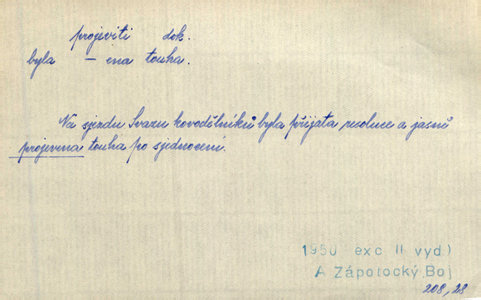 projeviti dok.
byla – ena touha.
Na sjezdu Svazu kovodělníků byla přijata resoluce a jasně
projevena touha po sjednocení.
1950 exc II vyd)
A Zápotocký, Boj
208, 28